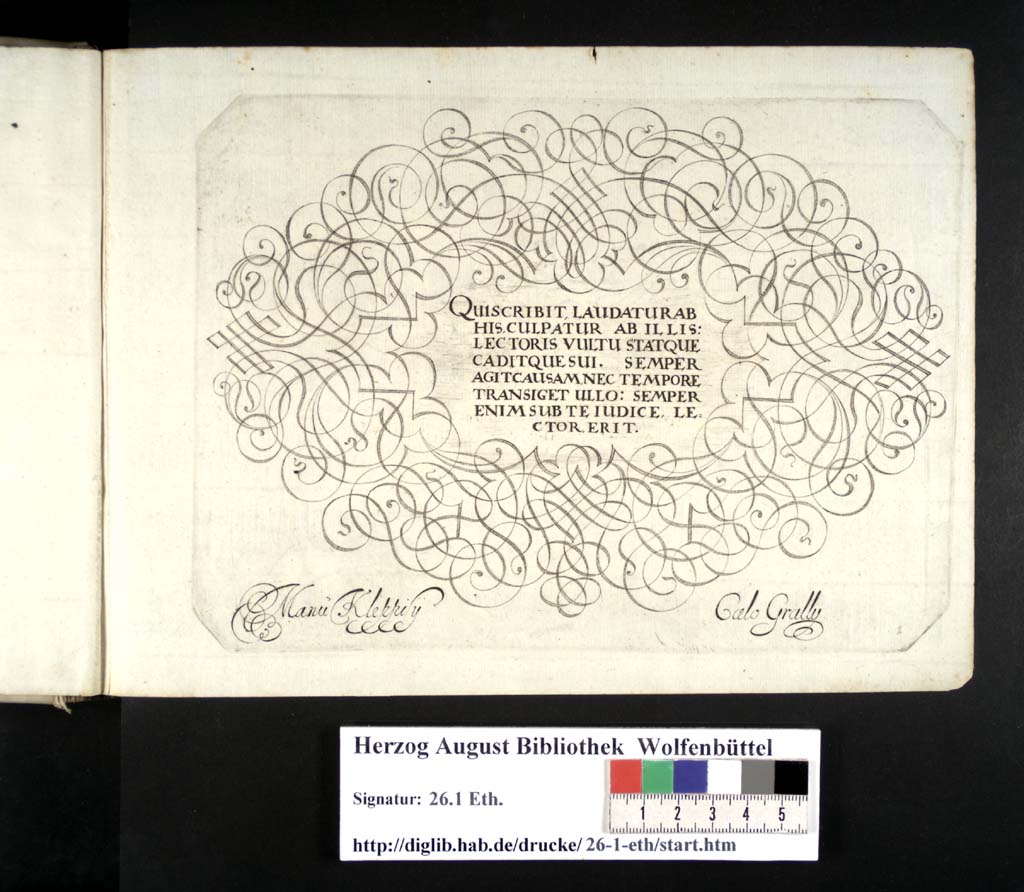 QUI SCRIBIT, LAUDATUR AB
HIS, CULPATUR AB ILLIS:
LECTORIS VULTU STATQUE
CADITQUE SUI. SEMPER
AGIT CAUSAM NEC TEMPORE
TRANSIGET ULLO: SEMPER
ENIM SUB TE IUDICE, LE-
CTOR, ERIT.
Manu Kleppisy
Cælo Grally
Herzog August Bibliothek Wolfenbüttel
Signatur: 26.1 Eth.
1 2 3 4 5
http://diglib.hab.de/drucke/ 26-1-eth/start.htm